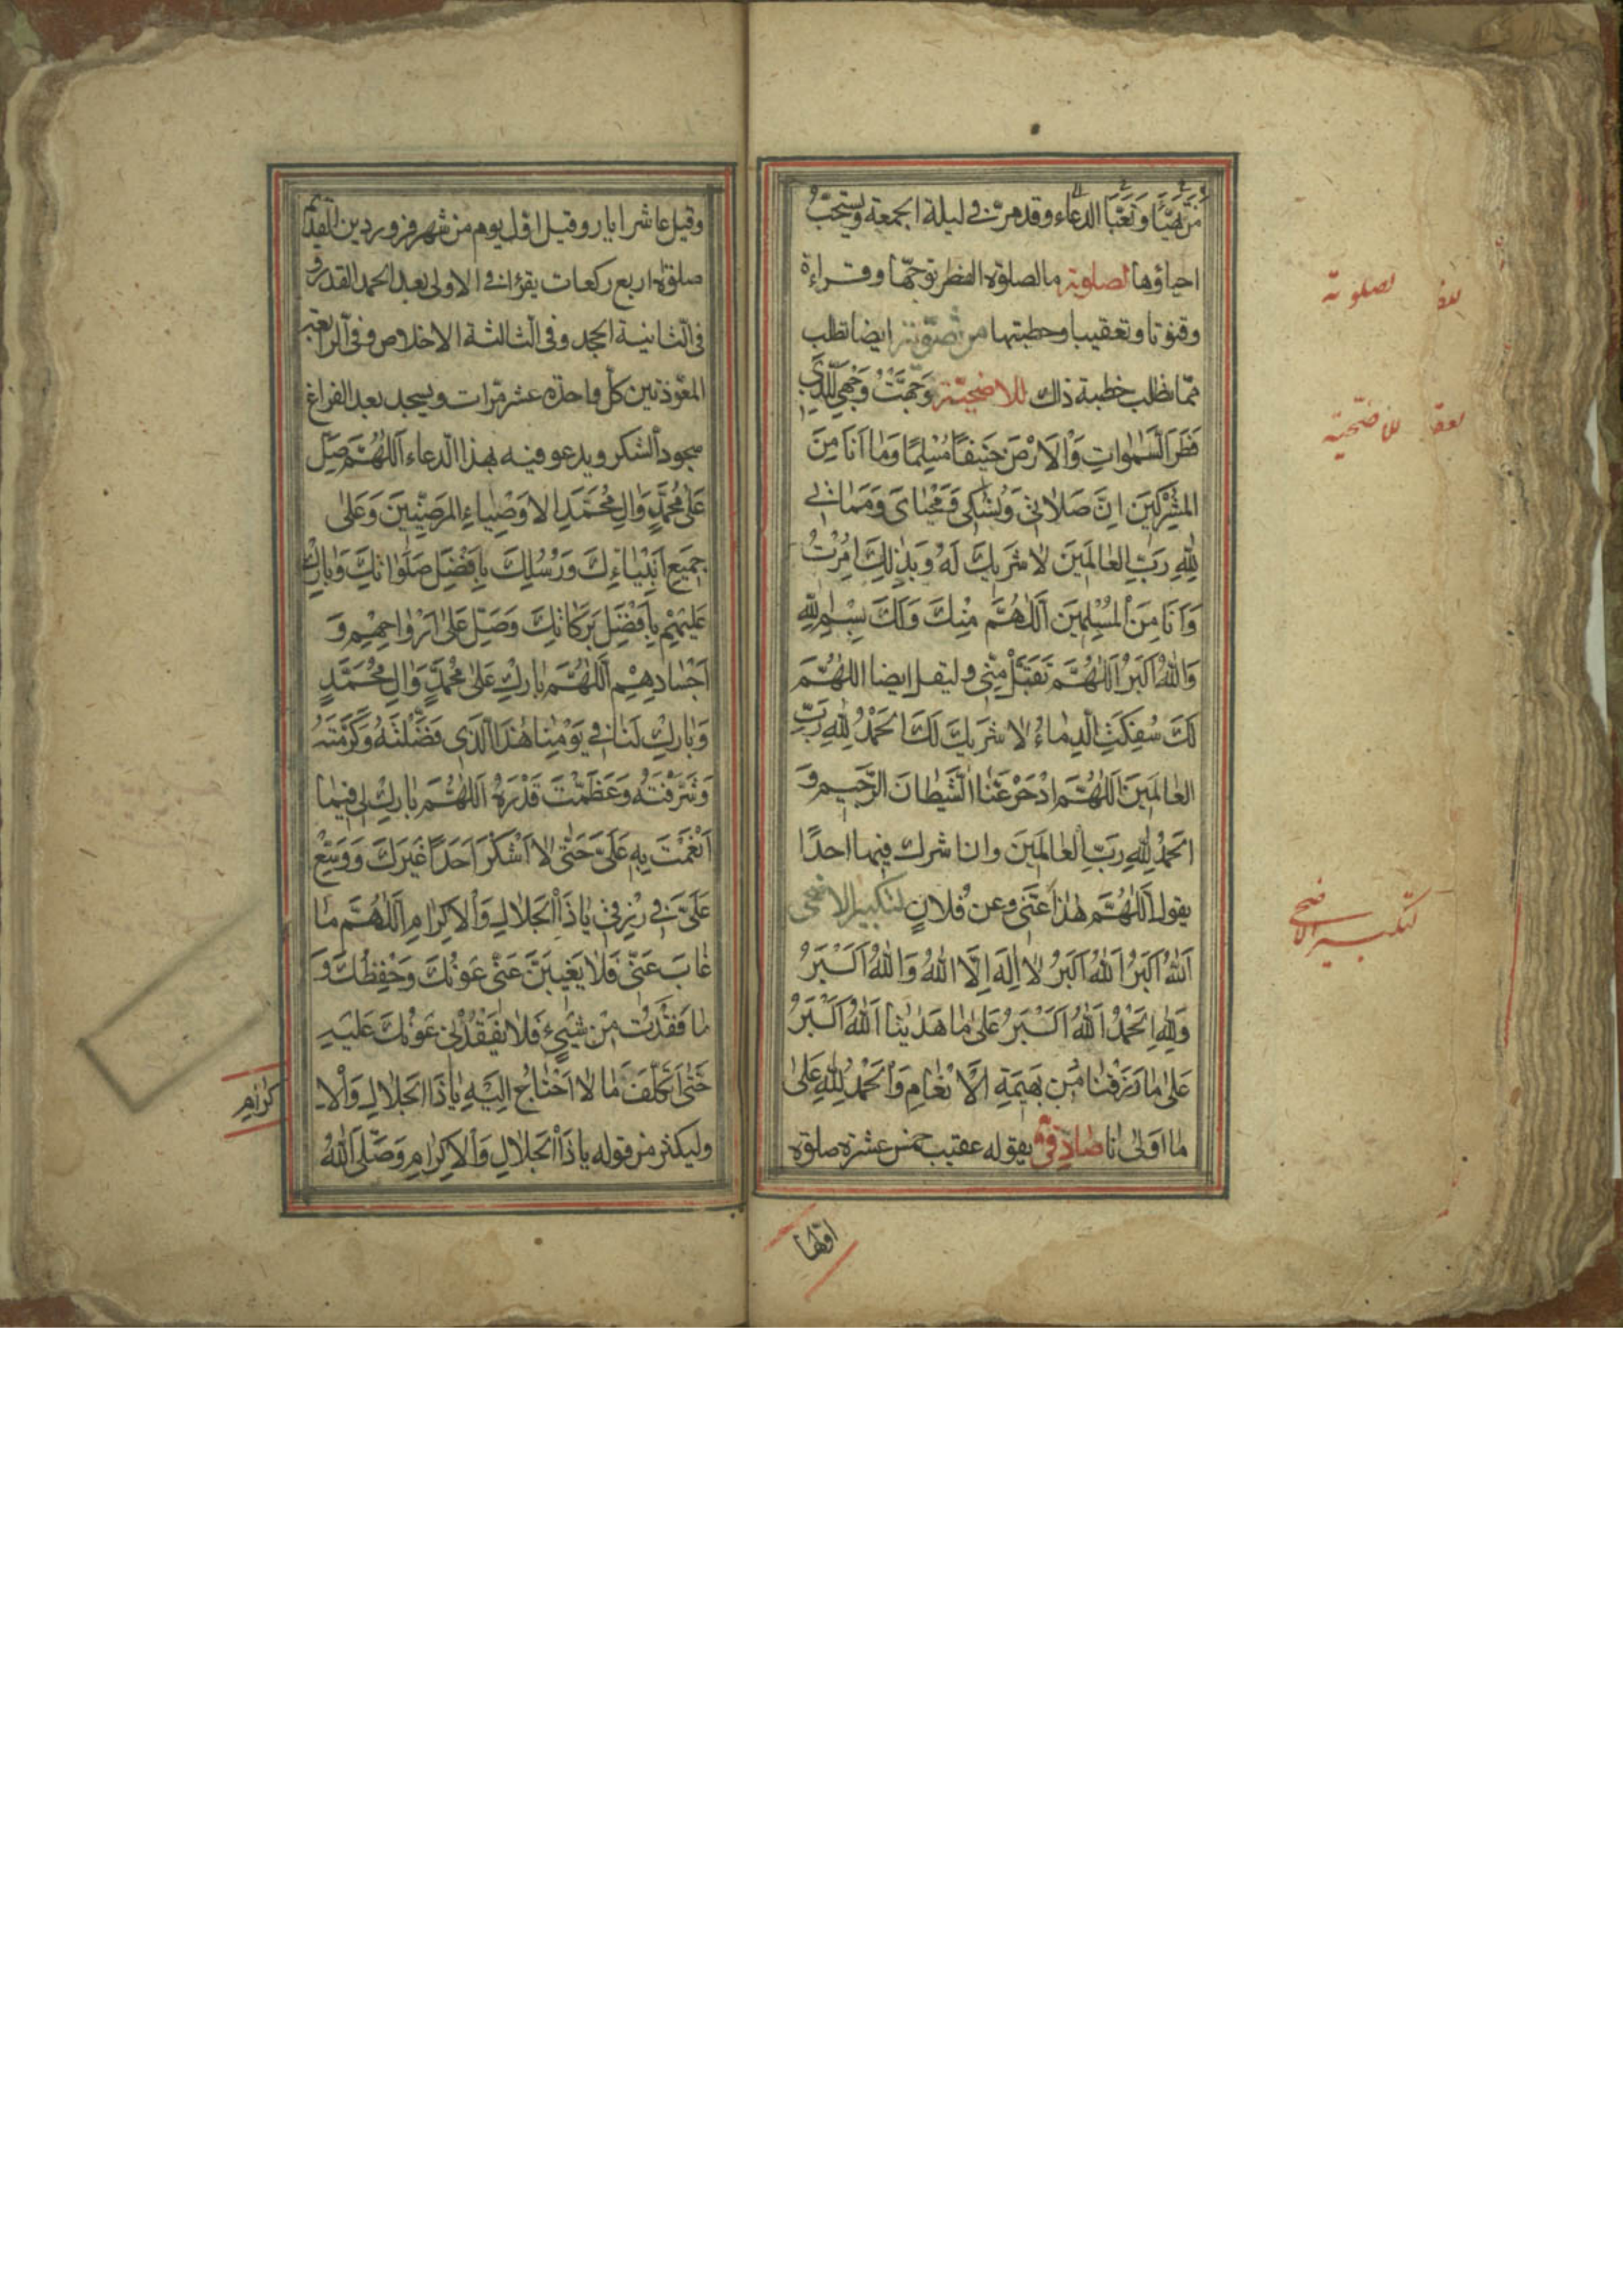 مَنْ تَهَيَّأَ وَتَعَبَّأَ الدعاء وقد مرّ فى ليلة الجمعة ويستحبّ
احياؤها لصلوته ما لصلوة الفطر توجّها وقراءة
وقنوتا وتعقيبا وخطبتها من ايضا تطلب
ممّا تطلب خطبة ذاك للاضحيّة وَجَّهْتُ وَجْهِيَ لِلَّذِي
فَطَرَ السَّمٰوَاتِ وَالْاَرْضَ حَنِيفًا مُسْلِمًا وَمَا اَنَا مِنَ
المُشْرِكِينَ اِنَّ صَلَاتِي وَنُسُكِي وَمَحْيَايَ وَمَمَاتِي
لِلّٰهِ رَبِّ العَالَمِينَ لَا شَرِيكَ لَهُ وَبِذٰلِكَ اُمِرْتُ
وَاَنَا مِنَ الْمُسْلِمِينَ اَللّٰهُمَّ مِنْكَ وَلَكَ بِسْمِ اللّٰهِ
وَاللّٰهُ اَكْبَرُ اَللّٰهُمَّ تَقَبَّلْ مِنِّي وليقل ايضا اللّٰهُمَّ
لَكَ سُفِكَتِ الدِّمَاءُ لَا شَرِيكَ لَكَ اَلحَمْدُ لِلّٰهِ رَبِّ
العَالَمِينَ اَللّٰهُمَّ ادْحَرْ عَنَّا الشَّيْطَانَ الرَّجِيمِ وَ
الحَمْدُ لِلّٰهِ رَبِّ العَالَمِينَ وان اشرك فيها احدًا
يقول اَللّٰهُمَّ هٰذَا عَنِّي وعن فُلَانٍ لتكبير الاضحى
اَللّٰهُ اَكْبَرُ اَللّٰهُ اَكْبَرُ لَا اِلٰهَ اِلَّا اللّٰهُ وَاللّٰهُ اَكْبَرُ
وَلِلّٰهِ الحَمْدُ اَللّٰهُ اَكْبَرُ عَلىٰ مَا هَدٰينَا اَللّٰهُ اَكْبَرُ
عَلىٰ مَا رَزَقْنَا مِنْ بَهِيمَةِ الْاَنْعَامِ وَالحَمْدُ لِلّٰهِ عَلىٰ
مَا اَوْلٰانَا صَادِقىّ يقوله عقيب خمس عشرة صلوة
اوّلها
لصلوته
للاضحيّة
لتكبير الاضحى
وقيل عاشر ايار وقيل اوّل يوم من شهر فروردين القديم
صلوة اربع ركعات يقرؤ فى الاولى بعد الحمد القدر و
فى الثانية الجحد وفى الثالثة الاخلاص وفى الرابعة
المعوّذتين كلّ واحدة عشر مرّات ويسجد بعد الفراغ
سجود الشكر ويدعو فيه بهذا الدعاء اَللّٰهُمَّ صَلِّ
عَلىٰ مُحَمَّدٍ وَالِ مُحَمَّدِ الاَوْصِيَاءِ المَرْضِيِّينَ وَعَلىٰ
جَمِيعِ اَنْبِيَاءِكَ وَرُسُلِكَ بِاَفْضَلِ صَلَوَاتِكَ وَبَارِكْ
عَلَيْهِمْ بِاَفْضَلِ بَرَكَاتِكَ وَصَلِّ عَلىٰ اَرْوَاحِهِمْ وَ
اَجْسَادِهِمْ اَللّٰهُمَّ بَارِكْ عَلىٰ مُحَمَّدٍ وَالِ مُحَمَّدٍ
وَبَارِكْ لَنَا فِي يَوْمِنَا هٰذَا الَّذِي فَضَّلْتَهُ وَكَرَّمْتَهُ
وَشَرَّفْتَهُ وَعَظَّمْتَ قَدْرَهُ اَللّٰهُمَّ بَارِكْ لِي فِيمَا
اَنْعَمْتَ بِهِ عَلَيَّ حَتّٰى لَا اَشْكُرَ اَحَدًا غَيْرَكَ وَوَسِّعْ
عَلَيَّ فِي رِزْقِي يَا ذَا الْجَلَالِ وَالْاِكْرَامِ اَللّٰهُمَّ مَا
غَابَ عَنِّي فَلَا يَغِيبَنَّ عَنِّي عَوْنُكَ وَحِفْظُكَ وَ
مَا فَقَدْتُ مِنْ شَيْءٍ فَلَا تُفْقِدْنِي عَوْنَكَ عَلَيْهِ
حَتّٰى لَا اَتَكَلَّفَ مَا لَا اَحْتَاجُ اِلَيْهِ يَا ذَا الجَلَالِ وَالْاِ
كرام
وليكثر من قوله يا ذَا الْجَلَالِ وَالْاِكْرَامِ وَصَلَّى اللّٰهُ